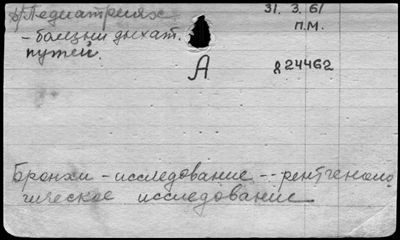 Педиатриях 31. 3. 61
- болезни дыхат. П.М.
путей.
А 824462
Бронхи - исследование -- рентгеноло
гическое исследование